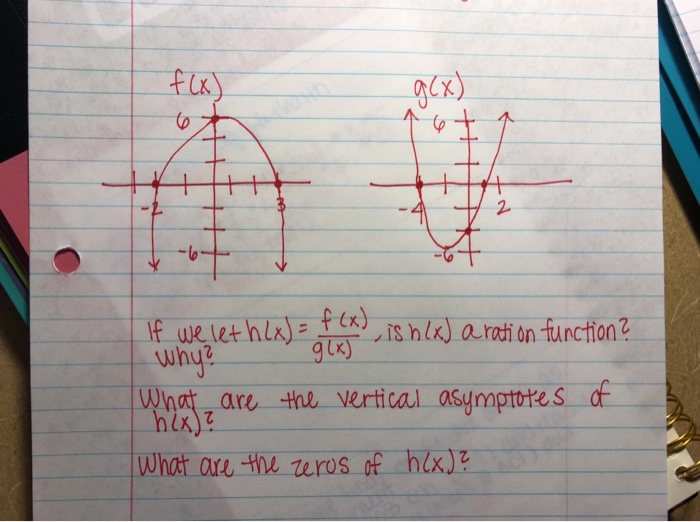 f(x) g(x)
6 6
-2 3 -4 2
-6 -6
If we let h(x) = f(x)/g(x), is h(x) a ration function?
why?
What are the vertical asymptotes of
h(x)?
What are the zeros of h(x)?